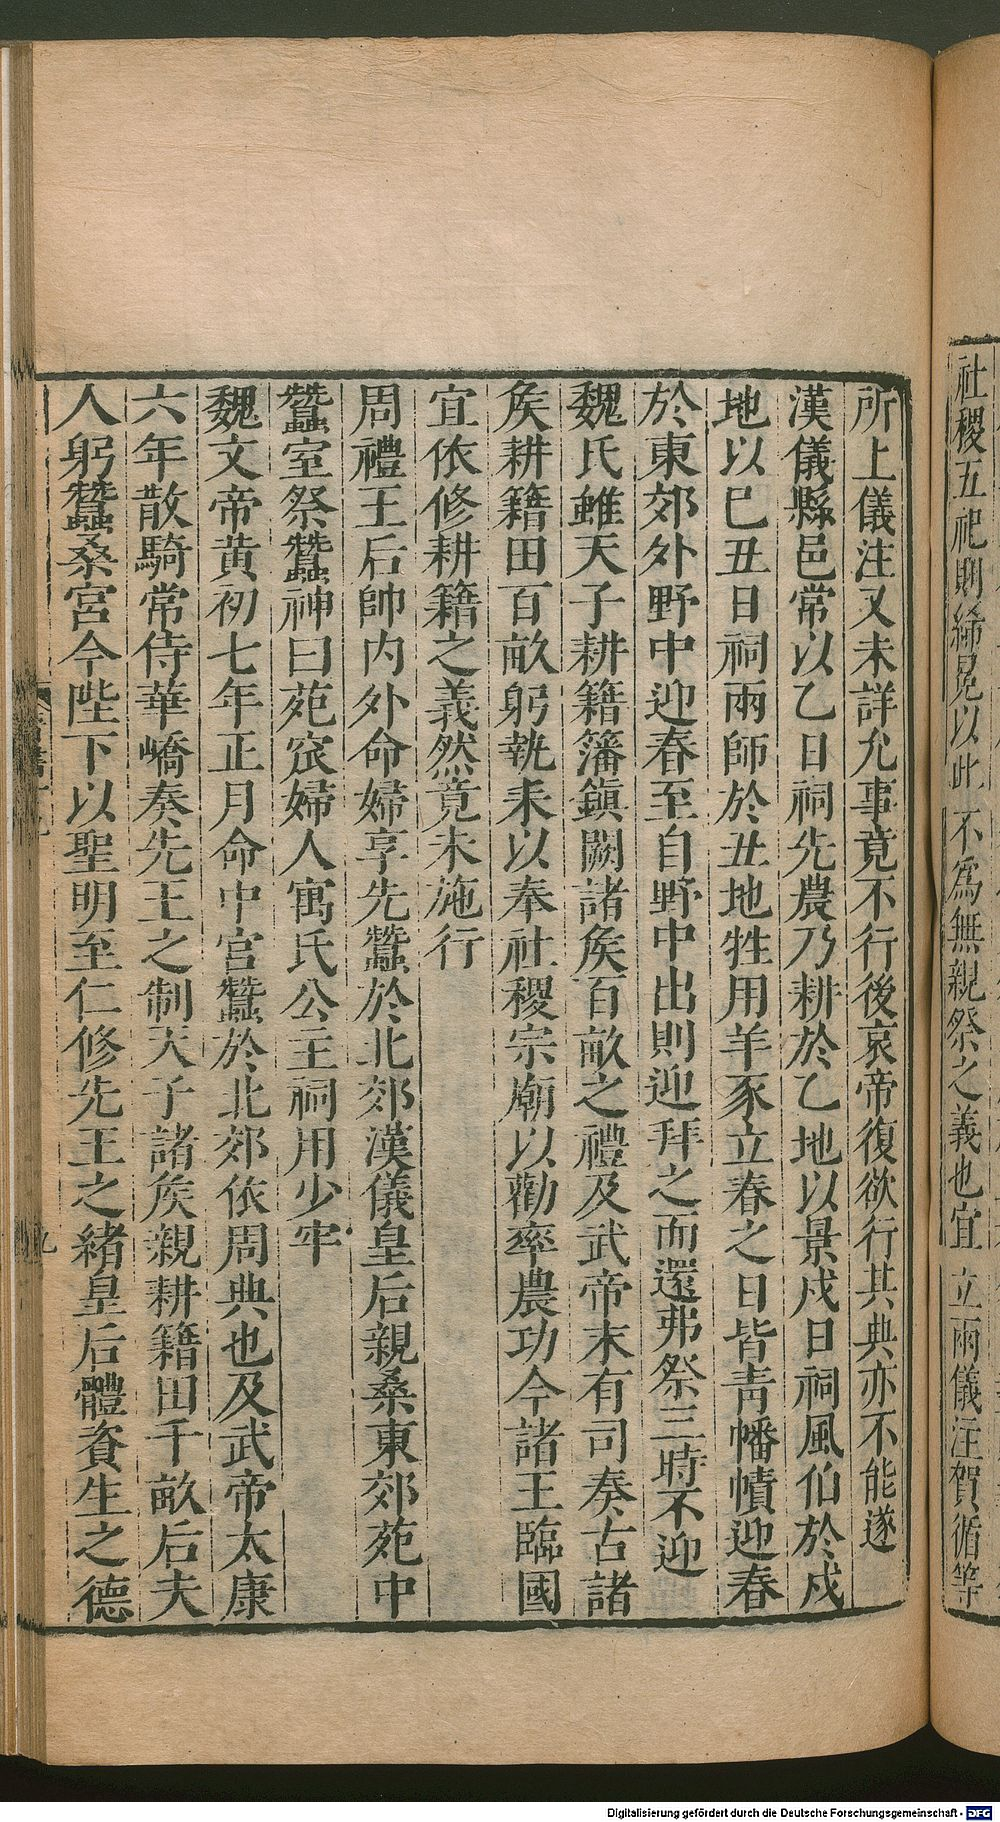 社稷五祀則絺冕以此不爲無親祭之義也宜立兩儀注賀循等
所上儀注又未詳允事竟不行後哀帝復欲行其典亦不能遂
漢儀縣邑常以乙日祠先農乃耕於乙地以景戍日祠風伯於戍
地以巳丑日祠雨師於丑地牲用羊豕立春之日皆青幡幘迎春
於東郊外野中迎春至自野中出則迎拜之而還弗祭三時不迎
魏氏雖天子耕籍籓鎮闕諸矦百畝之禮及武帝末有司奏古諸
矦耕籍田百畝躬執耒以奉社稷宗廟以勸率農功今諸王臨國
宜依修耕籍之義然竟未施行
周禮王后帥内外命婦享先蠶於北郊漢儀皇后親桑東郊苑中
蠶室祭蠶神曰苑窊婦人寓氏公主祠用少牢
魏文帝黄初七年正月命中宮蠶於北郊依周典也及武帝太康
六年散騎常侍華嶠奏先王之制天子諸矦親耕籍田千畝后夫
人躬蠶桑宮今陛下以聖明至仁修先王之緒皇后體資生之德
Digitalisierung gefördert durch die Deutsche Forschungsgemeinschaft - DFG